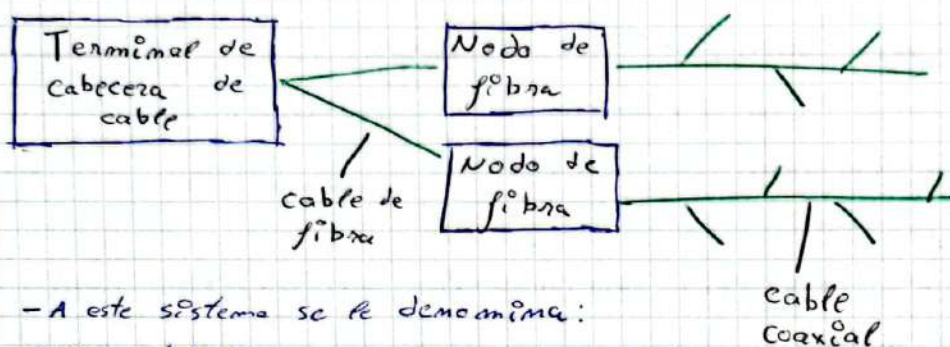 Terminal de
cabecera de
cable
Nodo de
fibra
Nodo de
fibra
cable de
fibra
cable
coaxial
- A este sistema se le denomina: